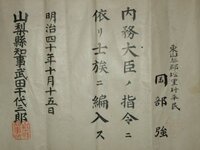 東山梨郡松里村平民
岡部強
内務大臣ノ指令ニ
依リ士族ニ編入ス
明治四十年十月十五日
山梨縣知事武田千代三郎